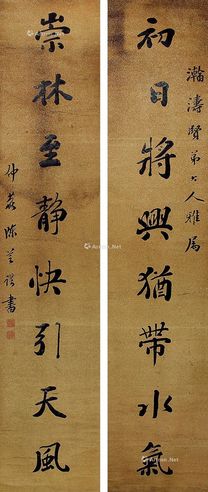 瀚濤賢弟大人雅屬
初日將興猶帶水氣
崇林至靜快引天風
仲
書